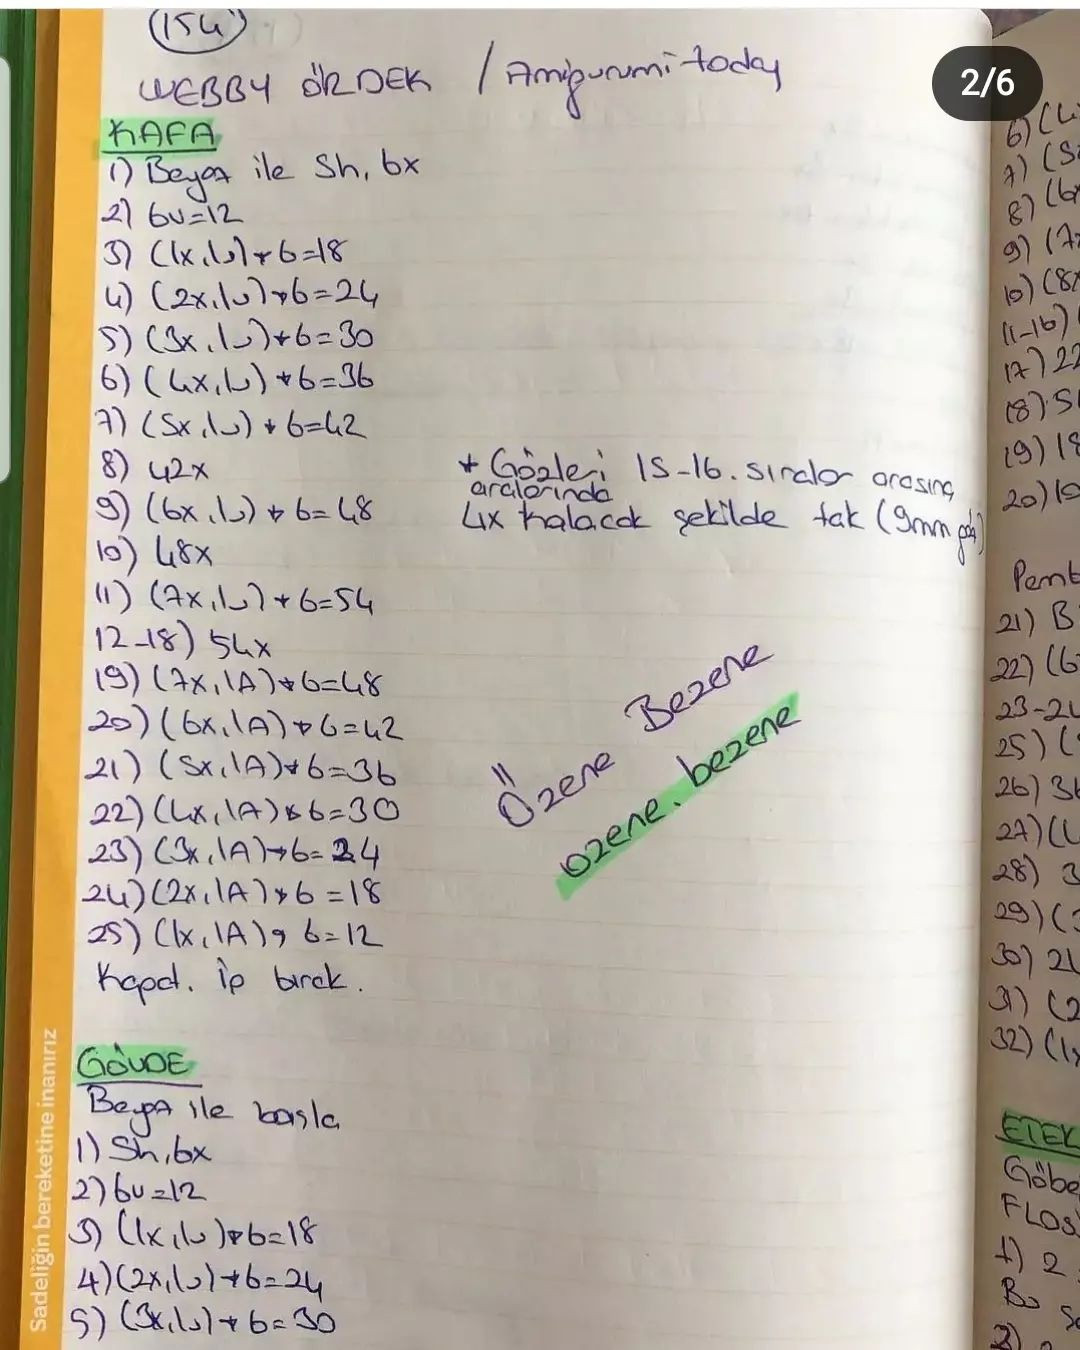 154
WEBBY ÖRDEK / Amigurumi today
2/6
KAFA
1) Beyaz ile Sh, 6x
2) 6v=12
3) (1x,1v)*6=18
4) (2x,1v)*6=24
5) (3x,1v)*6=30
6) (4x,1v)*6=36
7) (5x,1v)*6=42
8) 42x
9) (6x,1v)*6=48
10) 48x
11) (7x,1v)*6=54
12-18) 54x
19) (7x,1A)*6=48
20) (6x,1A)*6=42
21) (5x,1A)*6=36
22) (4x,1A)*6=30
23) (3x,1A)*6=24
24) (2x,1A)*6=18
25) (1x,1A)*6=12
Kapat. İp bırak.
* Gözleri 15-16. sıralar arasına
aralarında
4x kalacak şekilde tak (9mm göz)
Özene Bezene
ozene.bezene
GÖVDE
Beyaz ile başla
1) Sh, 6x
2) 6v=12
3) (1x,1v)*6=18
4) (2x,1v)*6=24
5) (3x,1v)*6=30
Sadeliğin bereketine inanırız
6) (4
7) (5
8) (6x
9) (7
10) (8
11-16)
17) 22
18) 5
19) 18
20) 10
21) B
22) (6
23-24
25) (
26) 36
27) (4
28) 3
29) (3
30) 24
31) (2
32) (1x
ETEK